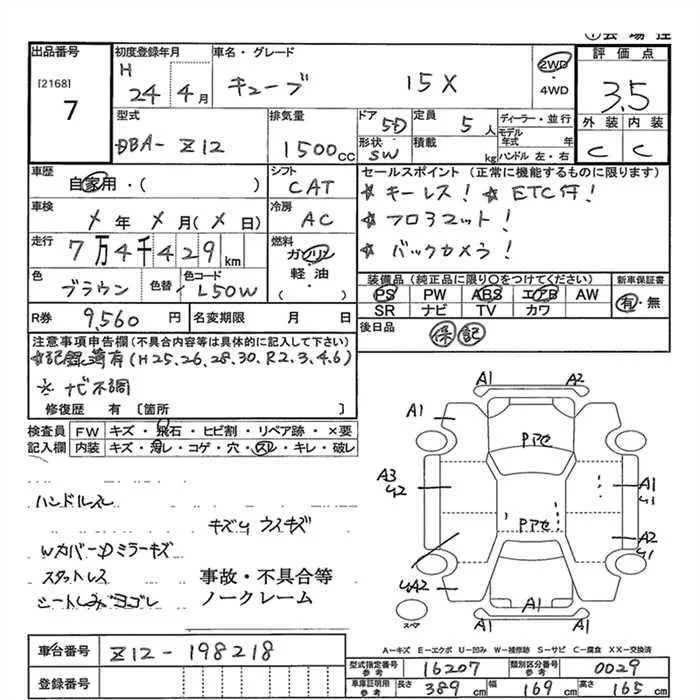 出品番号
[2168]
7
初度登録年月
H 24年 4月
車名・グレード
キューブ 15X
2WD
・
4WD
評価点
3.5
外装 内装
C C
型式
DBA-Z12
排気量
1500cc
ドア 5D
形状 SW
定員 5人
積載 kg
ディーラー・並行
モデル年式 年
ハンドル 左・右
車歴
自家用・( )
シフト
CAT
セールスポイント (正常に機能するものに限ります)
☆キーレス! ☆ETC付!
☆フロアマット!
☆バックカメラ!
車検
メ年 メ月(メ日)
冷房
AC
走行
7万4千429km
燃料
ガソリン
軽油
( )
色
ブラウン
色替
色コード
L50W
装備品 (純正品に限り○をつけてください)
PS PW ABS エアB AW
SR ナビ TV カワ
新車保証書
有・無
R券 9,560円
名変期限 月 日
後日品
保 記
注意事項申告欄(不具合内容等は具体的に記入して下さい)
☆記録簿有(H25,26,28,30,R2,3,4,6)
※ナビ不調
修復歴 有 [箇所 ]
検査員
記入欄
FW キズ・飛石・ヒビ割・リペア跡・×要
内装 キズ・汚レ・コゲ・穴・スレ・キレ・破レ
ハンドルスレ
キズUウスキズ
Wカバー・Dミラーキズ
スタットレス
シートしみヨゴレ
事故・不具合等
ノークレーム
A1 A2
A1
Pアセ
A3
U2
A1
U1
Pアセ
A2
U1
UA2
A1
A1
スペア
A-キズ E-エクボ U-凹み W-補修跡 S-サビ C-腐食 XX-交換済
車台番号
Z12-198218
登録番号
型式指定番号
参考
16207
類別区分番号
参考
0029
車庫証明用
参考
長さ 389cm
幅 169cm
高さ 165cm